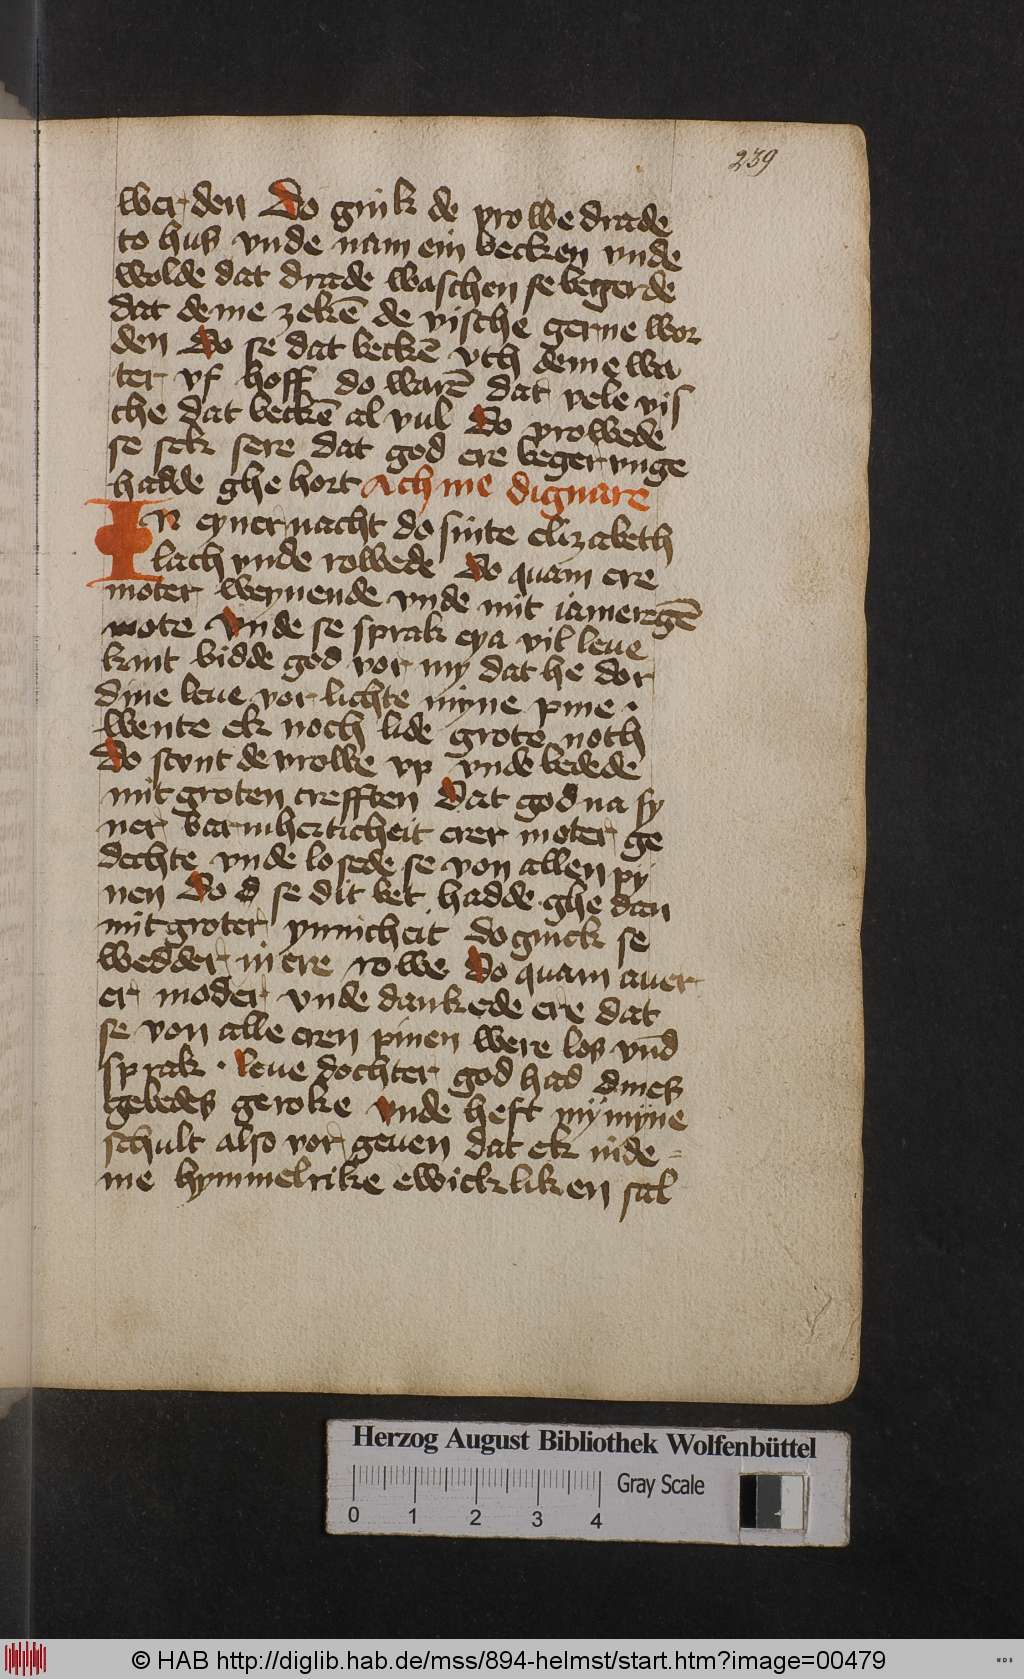 239
wer den Do gink de vrowe drade
to hus vnde nam ein becken vnde
wolde dat drade waschen se begerde
dat deme zekē de vische gerne wor
den Do se dat beckē vth deme wa
ter vf hoff do warē dat vele vis
che dat beckē al vul Do vrowede
se sek sere dat god ere begerunge
hadde ghe hort Ach me dignare
In eyner nacht do sinte elizabeth
lach vnde rowede Do quam ere
moter weynende vnde mit iameregē
mote Vnde se sprak eya vil leue
kint bidde god vor my dat he dor
dine leue vor lichte myne pine ·
wente ek noch lide grote noth
Do stvnt de vrowe vp vnde bedede
mit groten crefften Dat god na sy
ner barmherticheit erer moter ge
dechte vnde losede se von allen py
nen Do d se dit bet hadde ghe dan
mit groter ynnicheit do ginck se
wedder in ere rowe Do quam auer
er moder vnde dankede ere dat
se von alle eren pinen were los vnd
sprak · leue dochter god had dines
gebedes geroke vnde heft my myne
schult also vor geuen dat ek in de =
me hymmelrike ewickliken sal
Herzog August Bibliothek Wolfenbüttel
Gray Scale
0 1 2 3 4
© HAB http://diglib.hab.de/mss/894-helmst/start.htm?image=00479